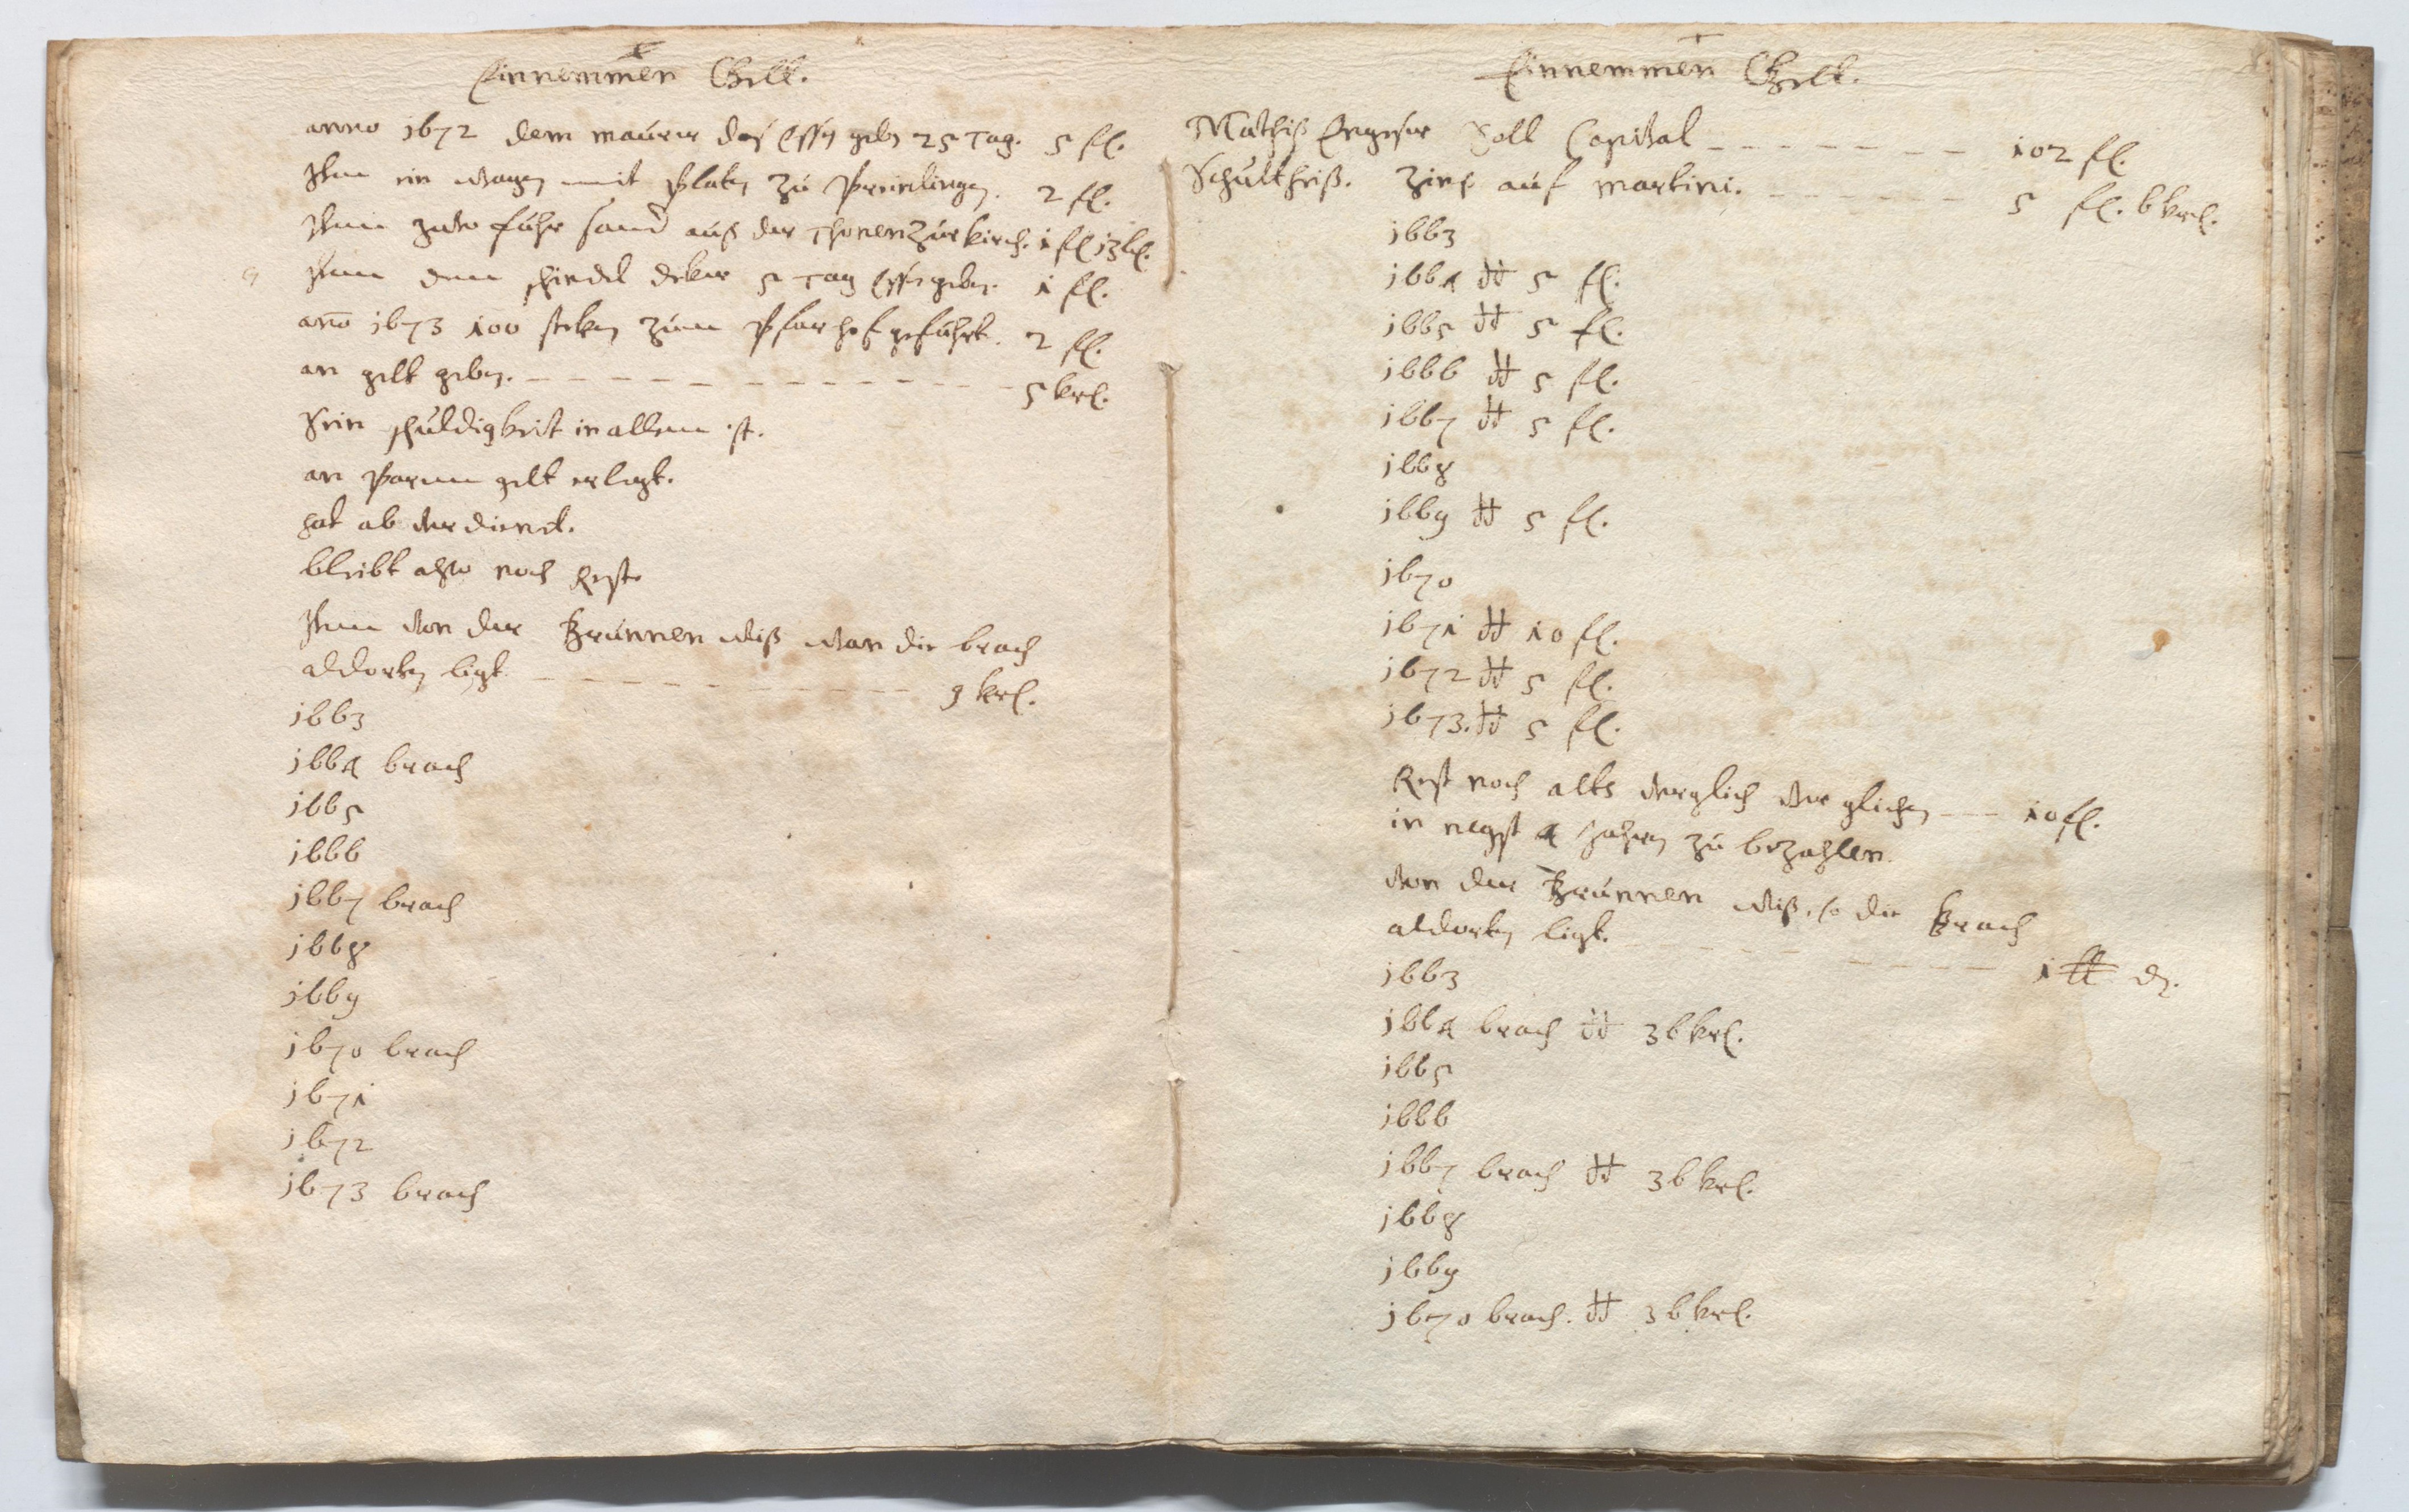 Einnemmen Gelt.
anno 1672 dem maurer das Essen geben 25 Tag. 5 fl.
Item ein wagen mit Platen zu Preinlingen. 2 fl.
Item zwo fuhr sand auß der Thonen zur kirch. 1 fl 13 kr.
Item dem schindel deker 5 Tag Essen geben. 1 fl.
anno 1673 100 steken zum Pfarhof geführt. 2 fl.
an gelt geben. 5 krl.
Sein schuldigkeit in allem ist.
an Parem gelt erlegt.
hat ab verdienet.
bleibt also noch Rest
Item von der Brunnen wiß wan die brach
aldorten ligt 9 krl.
1663
1664 brach
1665
1666
1667 brach
1668
1669
1670 brach
1671
1672
1673 brach
Einnemmen Gelt.
Mathiß Soll Capital 102 fl.
Schultheiß. Zinß auf martini. 5 fl. 6 krl.
1663
1664 dt 5 fl.
1665 dt 5 fl.
1666 dt 5 fl.
1667 dt 5 fl.
1668
1669 dt 5 fl.
1670
1671 dt 10 fl.
1672 dt 5 fl.
1673. dt 5 fl.
Rest noch alts verglichen 10 fl.
in negst 4 Jahren zu bezahlen.
von der Brunnen wiß, so die Brach
aldorten ligt. 1 ℔ d.
1663
1664 brach dt 36 krl.
1665
1666
1667 brach dt 36 krl.
1668
1669
1670 brach. dt 36 krl.